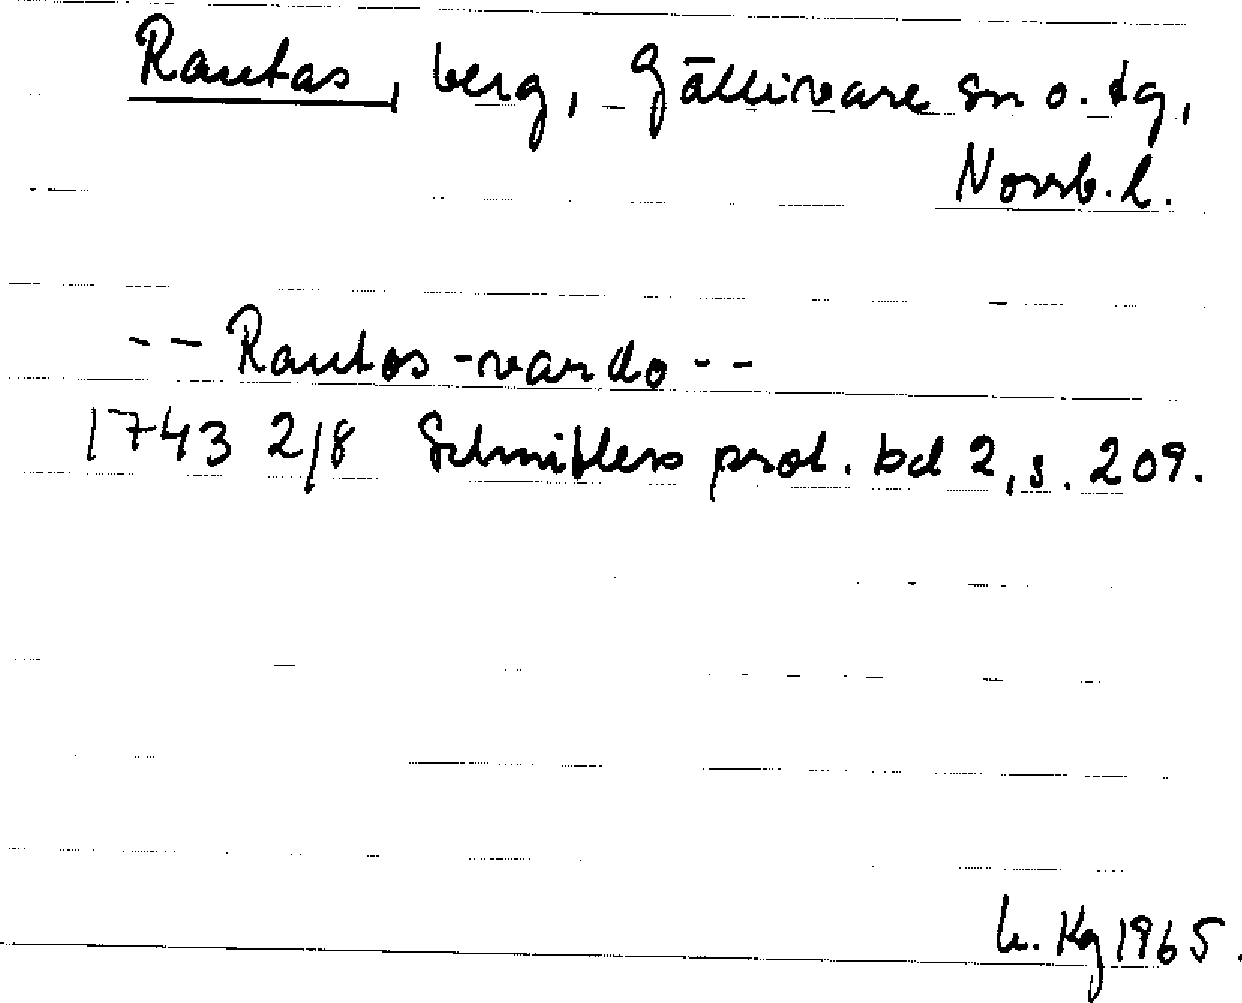 Rautas, berg, Gällivare sn o. tg,
Norrb. l.
-- Rautos-vardo --
1743 2/8 Schnitlers prot. bd 2, s. 209.
Kg 1965.